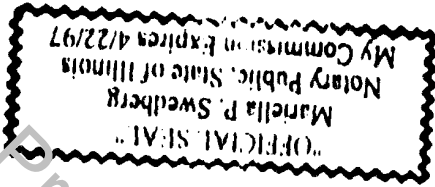 "OFFICIAL SEAL"
Mariella P. Swedberg
Notary Public, State of Illinois
My Commission Expires 4/22/97